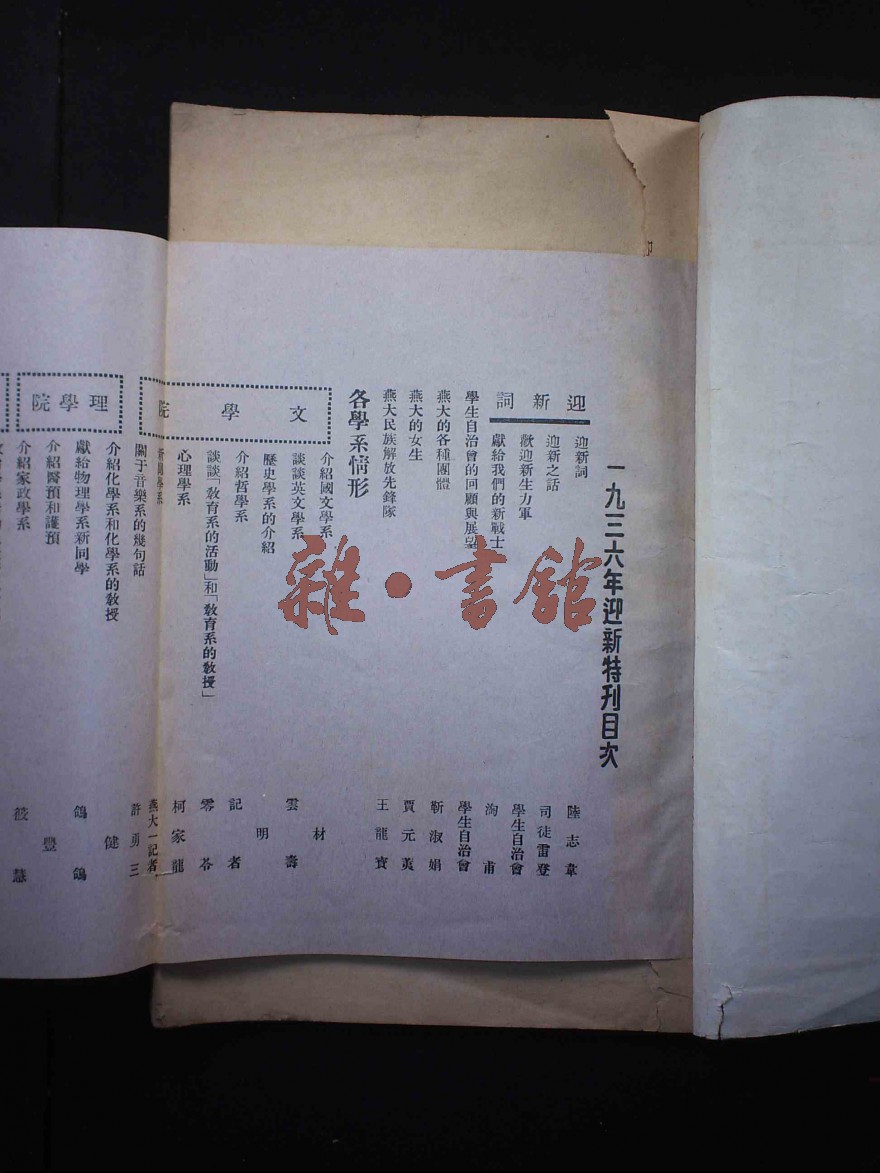 一九三六年迎新特刊目次
迎新詞
迎新詞 陸志韋
迎新之話 司徒雷登
歡迎新生力軍 學生自治會
獻給我們的新戰士 洵甫
學生自治會的回顧與展望 學生自治會
燕大的各種團體 靳淑娟
燕大的女生 賈元荑
燕大民族解放先鋒隊 王龍寶
各學系情形
文學院
介紹國文學系 材
談談英文學系 雲壽
歷史學系的介紹 明
介紹哲學系 記者
談談「教育系的活動」和「教育系的教授」 零苓
心理學系 柯家龍
新聞學系 燕大一記者
關于音樂系的幾句話 許勇三
理學院
介紹化學系和化學系的教授 健
獻給物理學系新同學 鴿鴿
介紹醫預和護預 豐
介紹家政學系 筱慧
雜·書館